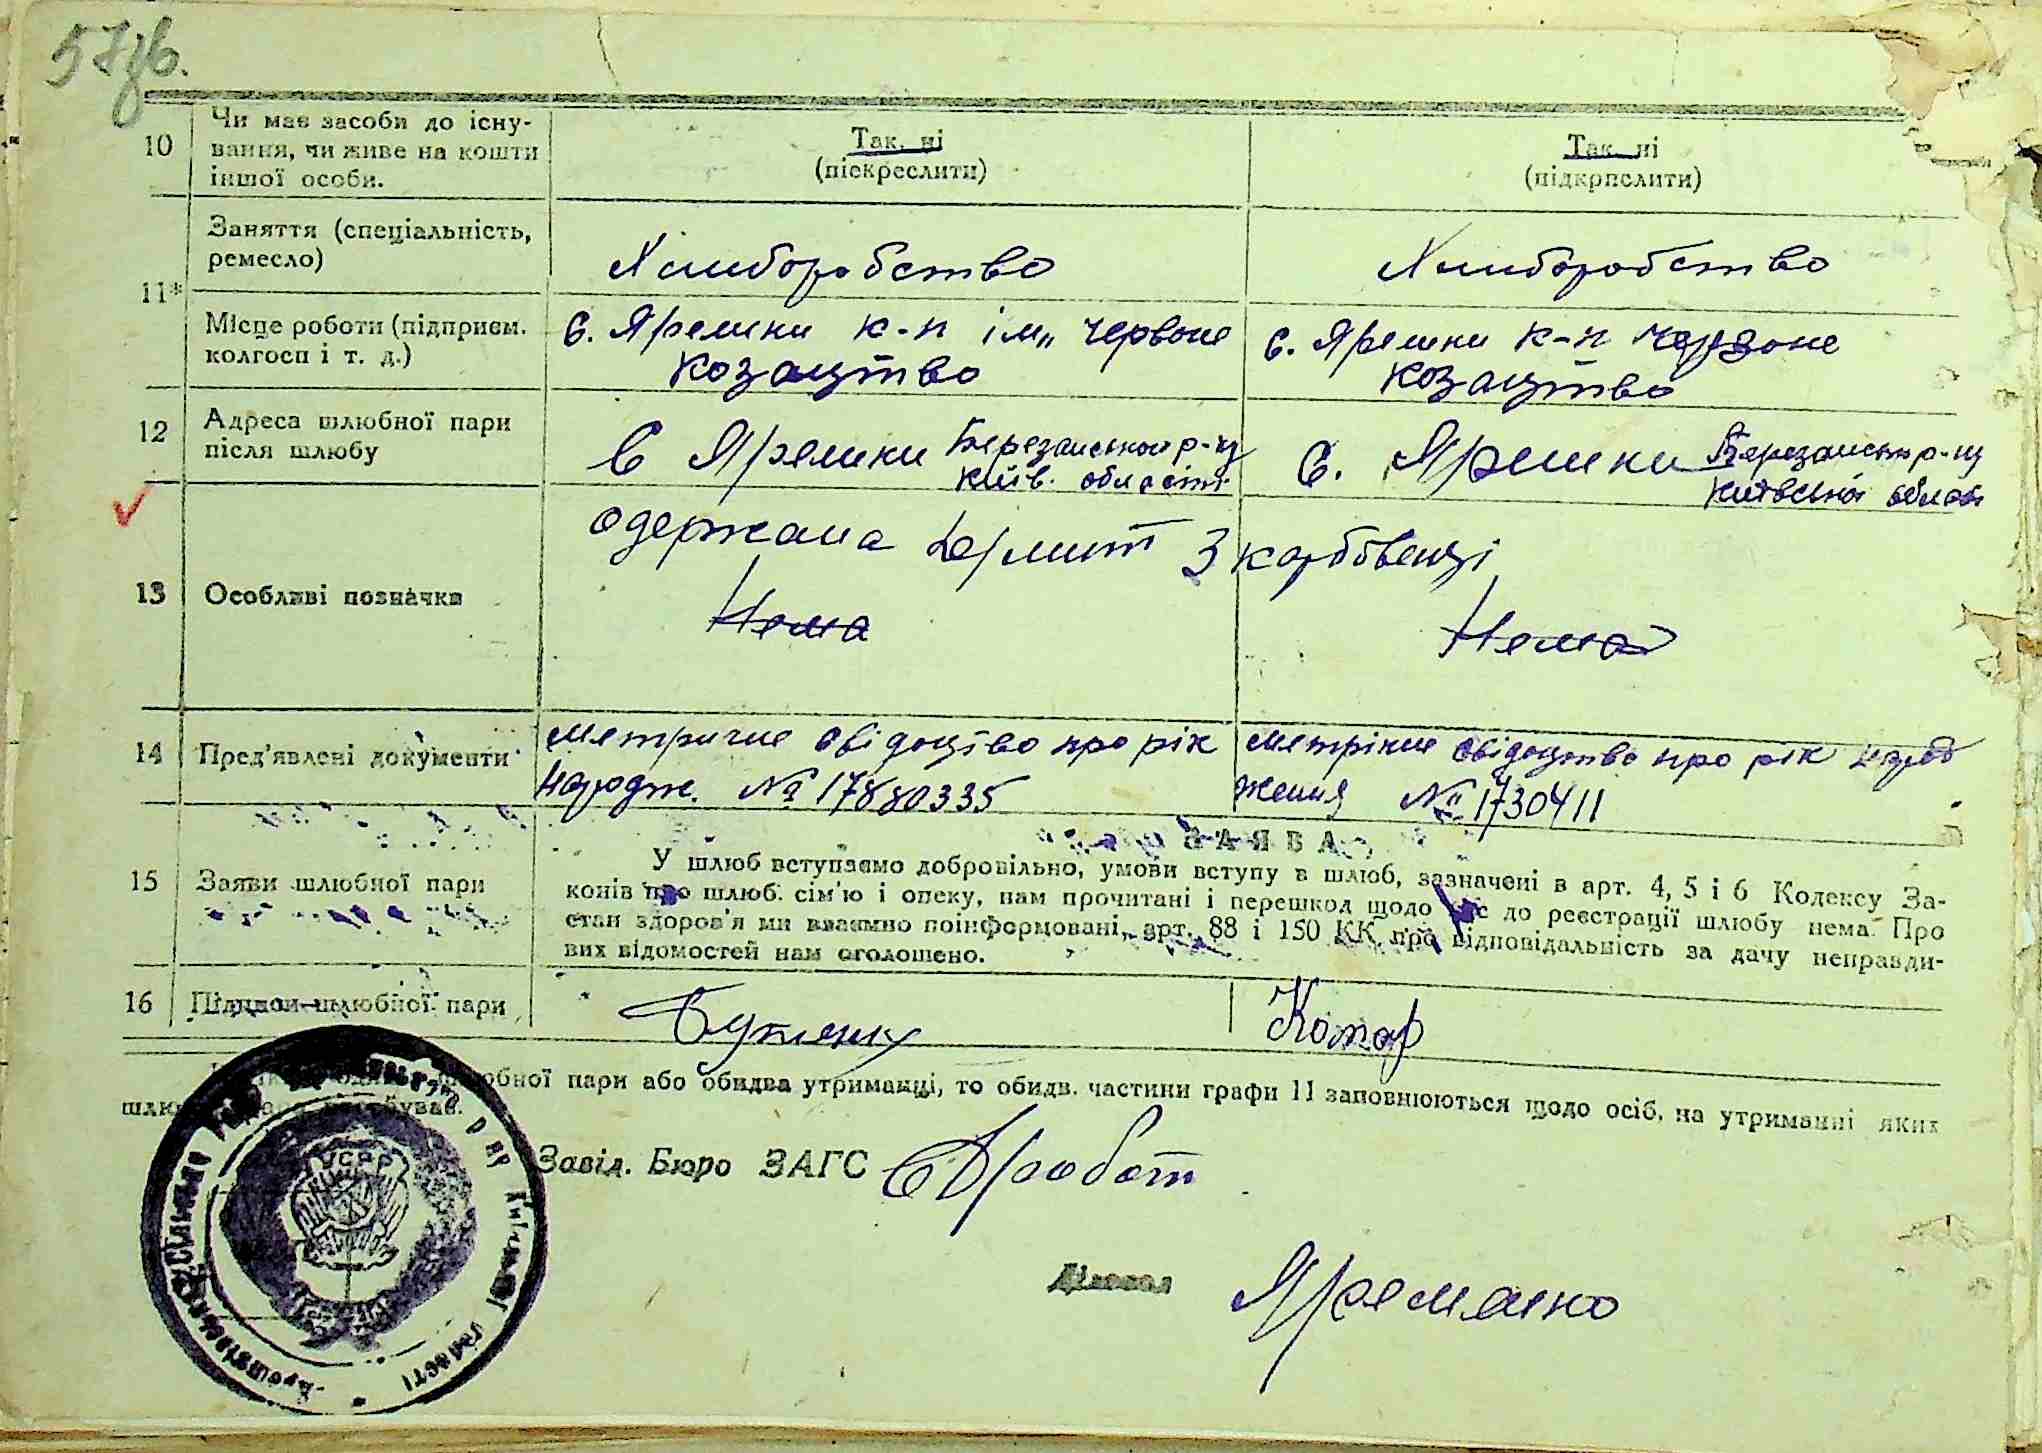 57зв.
10
Чи має засоби до існу-
вання, чи живе на кошти
іншої особи.
Так, ні
(піекреслити)
Так, ні
(підкрпслити)
11*
Заняття (спеціальність,
ремесло)
Хліборобство
Хліборобство
Місце роботи (підприєм.
колгосп і т. д.)
с. Яремики к-п ім„ Червоне
козацтво
с. Яремики к-п Червоне
козацтво
12
Адреса шлюбної пари
після шлюбу
с Яремики Березанського р-ну
Київ. області
с. Яремики Березанськ р-ну
Київської облас
13
Особливі позначки
одержана 3 карбованці
Нема
Нема
14
Пред'явлені документи
метричне свідоцтво про рік
народж. № 17880335
метрічне свідоцтво про рік народ
ження № 1730411
15
Заяви шлюбної пари
ЗАЯВА
У шлюб вступаємо добровільно, умови вступу в шлюб, зазначені в арт. 4, 5 і 6 Кодексу За-
конів про шлюб. сім'ю і опеку, нам прочитані і перешкод щодо до реєстрації шлюбу нема. Про
стан здоров'я ми взаємно поінформовані, арт. 88 і 150 КК про відповідальність за дачу неправди-
вих відомостей нам оголошено.
16
Підписи шлюбної пари
Бутенку
Комар
шлюбної пари або обидва утриманці, то обидв. частини графи 11 заповнюються щодо осіб, на утриманні яких
Завід. Бюро ЗАГС
УСРР
Діловод